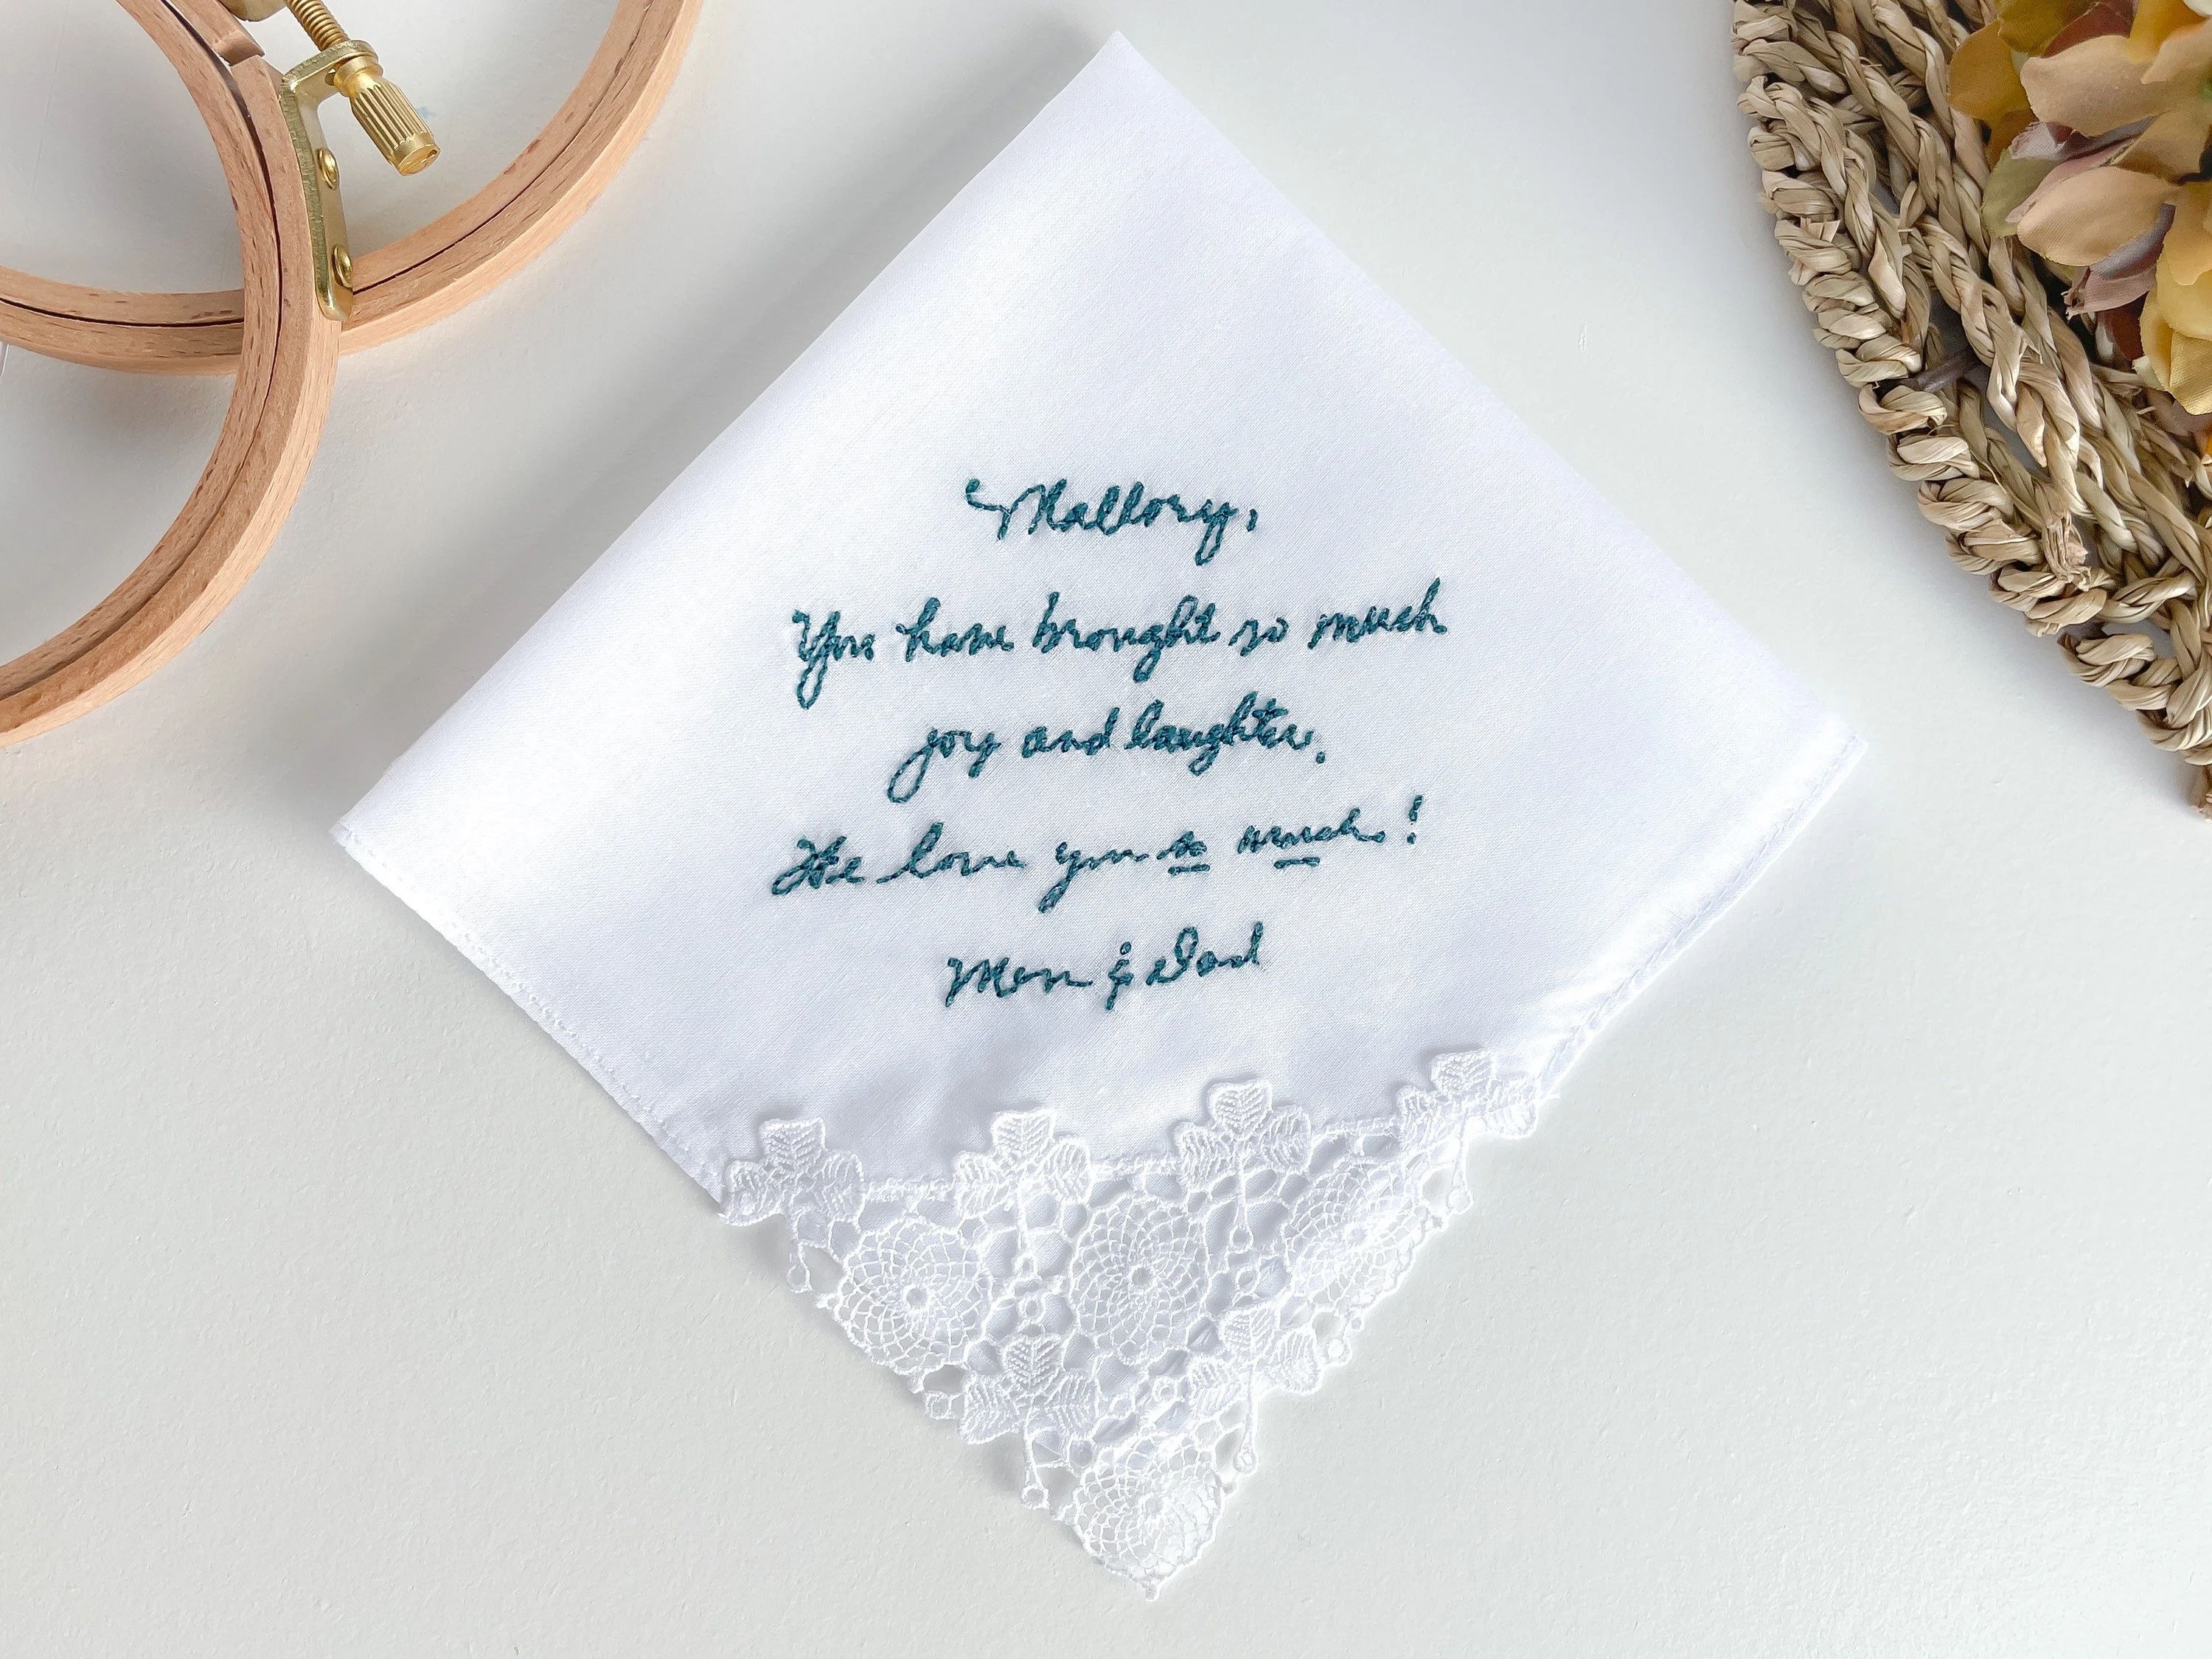 Mallory,
You have brought so much
joy and laughter.
We love you so much!
Mom & Dad